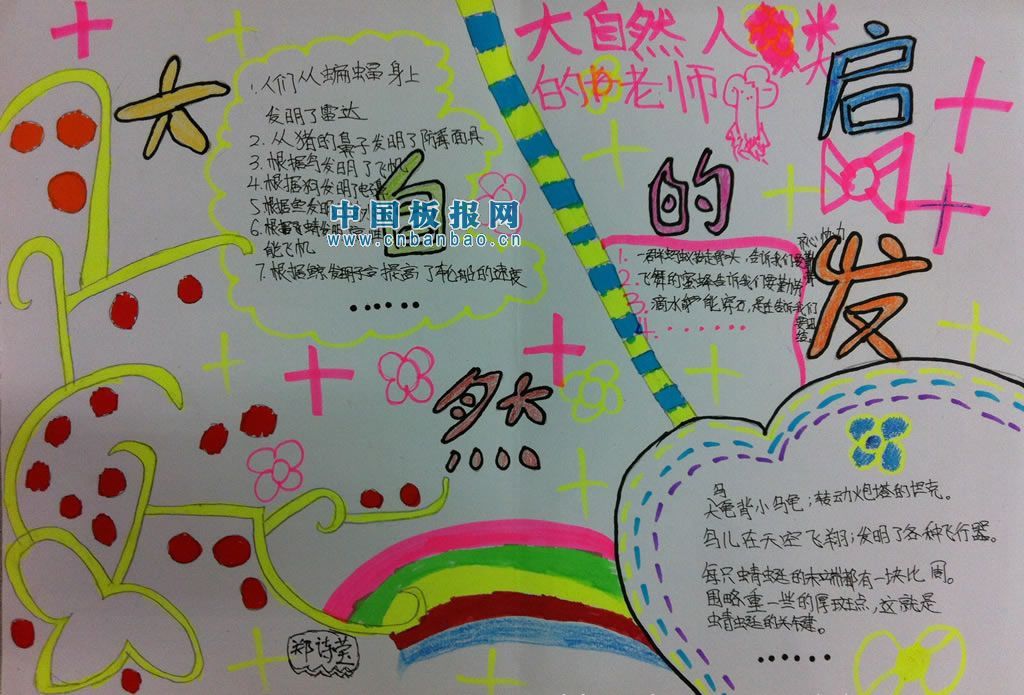 大自然的启发
大自然 人类
的老师
1.人们从蝙蝠身上
发明了雷达
2.从猪的鼻子发明了防毒面具
3.根据鸟发明了飞机
4.根据狗发明了电
5.根据
6.根据
能飞机
7.根据 提高了轮船的速度
......
中国板报网
www.cnbanbao.cn
1.一群 告诉我们要
齐心协力
2.飞舞的蜜蜂告诉我们要勤劳
3.滴水 能穿石,是告诉我们
要
4.......
乌
大龟背小乌龟;转动炮塔的坦克。
鸟儿在天空飞翔;发明了各种飞行器。
每只蜻蜓的末端都有一块比周
围略重一些的厚斑点,这就是
蜻蜓的关键。
......
郑诗莹